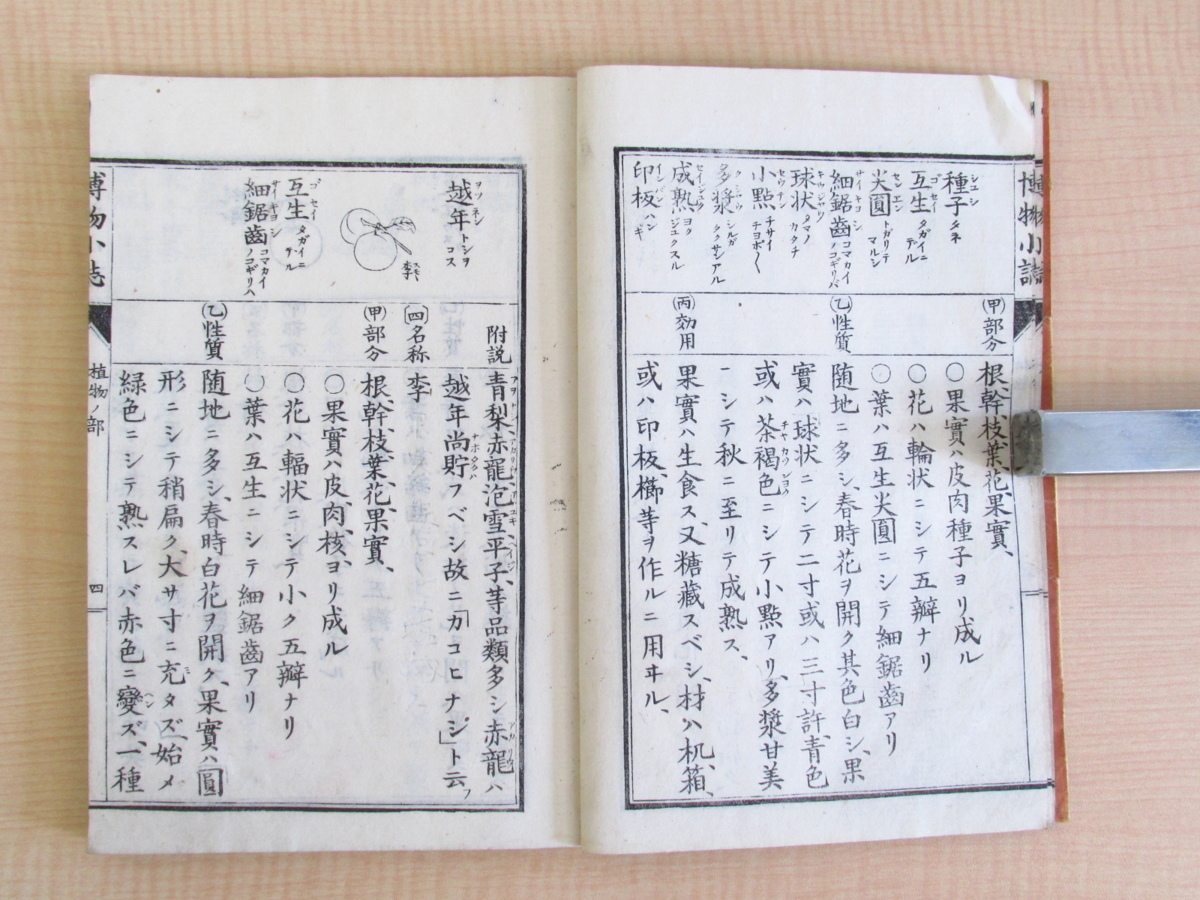 博物小誌
種子 シユシ タネ
互生 ゴセイ タガイニデル
尖圓 センエン トガリテマルシ
細鋸齒 サイキヨシ コマカイノコギリバ
球状 キウジヤウ タマノカタチ
小點 セウテン チサイチヨボ〱
多漿 タシヤウ シルガタクサンアル
成熟 セイジユク ヨクジユクスル
印板 インバン ハンギ
㊙甲 部分
根、幹、枝、葉、花、果實、
〇果實ハ皮肉種子ヨリ成ル
〇花ハ輪状ニシテ五瓣ナリ
〇葉ハ互生尖圓ニシテ細鋸齒アリ
(乙)性質
随地ニ多シ、春時花ヲ開ク其色白シ、果
實ハ球状ニシテ二寸或ハ三寸許、青色
或ハ茶褐色ニシテ小點アリ、多漿甘美
ニシテ秋ニ至リテ成熟ス、
(丙)効用
果實ハ生食ス又糖藏スベシ、材ハ机、箱、
或ハ印板、櫛等ヲ作ルニ用ヰル、
越年 ヲツネン トシヲコス
李 スモヽ
互生 ゴセイ タガイニデル
細鋸齒 サイキヨシ コマカイノコギリハ
附説
青梨、赤龍、泡雪、平子、等品類多シ赤龍ハ
越年尚貯フベシ故ニ「カコヒナシ」ト云フ
四 名称
李
(甲)部分
根、幹、枝、葉、花、果、實、
〇果實ハ皮、肉、核、ヨリ成ル
〇花ハ輻状ニシテ小ク五瓣ナリ
〇葉ハ互生ニシテ細鋸齒アリ
(乙)性質
随地ニ多シ、春時白花ヲ開ク、果實ハ圓
形ニシテ稍扁ク、大サ寸ニ充タズ、始メ
緑色ニシテ熟スレバ赤色ニ變ズ、一種
博物小誌
植物ノ部
四